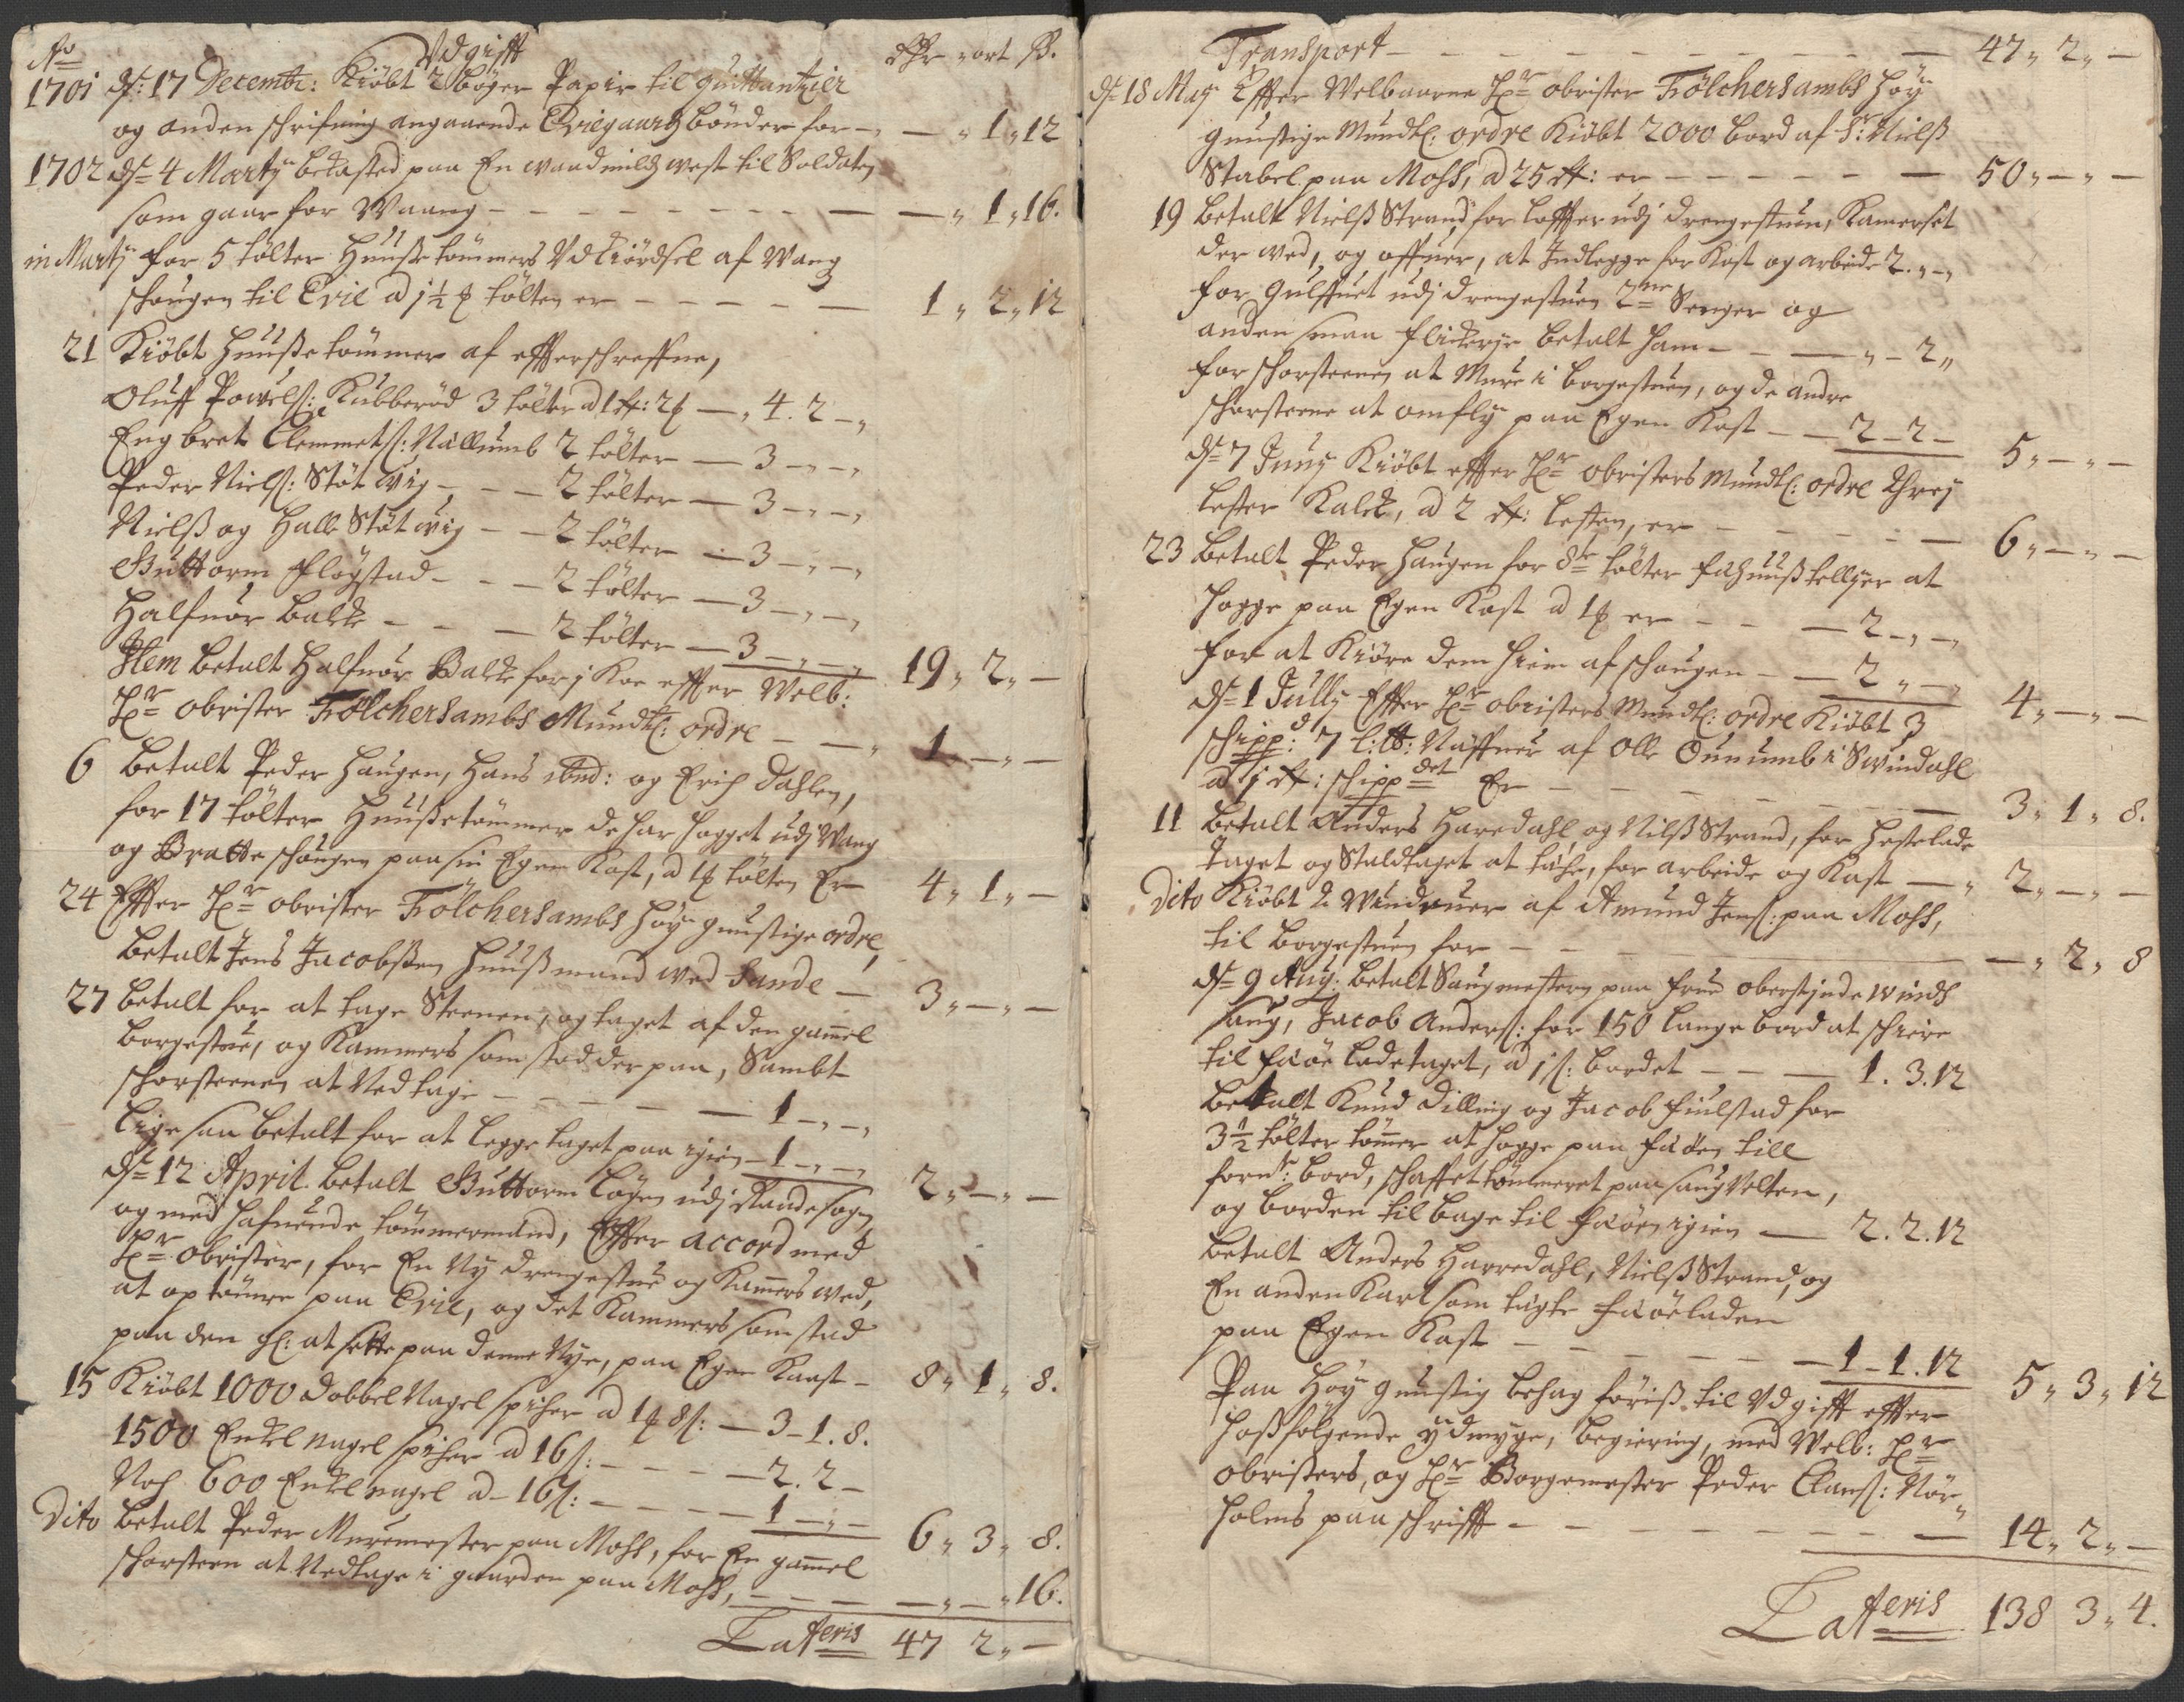 No Udgifft Rdr ort ß.
1701 d: 17 Decembr: Kiöbt 2 bøger Papir til quittantzier
og anden schrifning angaaende Eviegaardz bönder for - - „ 1 „ 12
1702 d 4 Marty bekasted paa En wandmilds west til Soldaten
som gaar for Waang - - - „ 1 „ 16.
in Marty for 5 tölter Huußetömmers Udkiördsel af Wang
schougen til Evie a 1½ # tölten er - - - 1 „ 2 „ 12
21 Kiöbt Huußetömmer af effterschreffne,
Oluff Powels: Kubberöd 3 tölter a 1 rt: 2 # - „ 4. 2 - „
Engbret Clemmets: Nallumb 2 tölter - 3 - „ - „
Peder Niels: Stötwig - - - 2 tölter - 3 - „ - „
Nielß og Halle Stötwig - - 2 tölter - 3 - „ - „
Guttorm Fløgstad - - - 2 tölter - 3 - „ - „
Halfuor Balke - - - 2 tölter - 3 - „ - „ 19 „ 2 „ -
Item betalt Halfuor Balke for j Koe effter Welb:
Hr obrister Tölchersambs Mundtl: ordre - - „ 1 - „ -
6 Betalt Peder Haugen, Hans ibid: og Erich Dahlen,
for 17 tölter Huußetömmer de har hogget udj Wang
og Bratte schougen paa sin Egen Kost, a 1 # tölten Er 4 „ 1 „ -
24 Effter Hr obrister Tölchersambs höy gunstige ordre,
betalt Jens Jacobßen Huußmand wed Sande - 3 „ - „ -
27 Betalt for at tage Steenen, og taget af den gamel
borgestue, og Kammers som stod der paa, Sambt
schorsteenen at Nedtage - - - - - 1 - „ - „
Lige saa betalt for at legge taget paa igien - 1 - „ - „ 2 „ - „ -
d 12 April. betalt Guttorm Løgen udj Raade sogn
og med hafuende tömmermand, Effter accord med
Hr obrister, for En Ny drengestue og Kamers wed,
at optömre paa Evie, og det Kammers som stod
paa den gl: at sette paa denne Nye, paa Egen Kaast - 8 „ 1 „ 8.
15 Kiöbt 1000 dobbel Nagel spiher a 1 # 8 ß: - 3 - 1. 8.
1500 Enkel nagel spiher a 16 ß: - - - 2. 2 -
Noch 600 Enkel nagel a - 16 ß: - - - 1 - „ - 6 „ 3 „ 8.
Dito Betalt Peder Muremester paa Moss, for En gamel
schorsteen at Nedtage i gaarden paa Moss, - - - „ - „ 16.
Latteris 47 2 „ -
Transport - - - - 47 „ 2 „ -
d 18 May Effter Welbaarne Hr obrister Tölchersambs Höy
gunstige Mundtl: ordre Kiöbt 2000 bord af Sr: Nielß
Stabel paa Moss, a 25 rt: er - - - - 50 „ - „ -
19 Betalt Nielß Strand for lofftet udj drengestuen, Kamerset
der wed, og offuer, at Indlegge for Kost og arbeide 2. „ - „
for Gulffuet udj drengestuen 2ne Senger og
anden smaa flickerje betalt ham - - - „ - 2 „
for schorsteenen at Mure i borgestuen, og de andre
schorsteene at omfly paa Egen Kost - - 2 - 2 - 5 „ - „ -
d 7 Juny Kiöbt effter Hr obristers Mundtl: ordre threj
lester Kalck, a 2 rt: lesten, er - - - - 6 „ - „ -
23 Betalt Peder Haugen for 8te tölter fæhuuß tellyer at
hogge paa Egen Kost a 1 # er - - - 2 - „ - „
for at Kiöre dem hiem af schougen - - 2 „ - „ 4 „ - „ -
d 1 July Effter Hr obristers Mundtl: ordre Kiöbt 3
schippd: 7 L: ℔: Näffuer af Olle Ounumb i Swindahl
a j rt: schippdet Er - - - - 3 „ 1 „ 8.
11 Betalt Anders Haredahl og Nilß Strand, for hestelade
taget og Staldtaget at tæche, for arbeide og Kost - „ 2 „ - „ -
Dito Kiöbt 2 Winduer af Amund Jens: paa Moss,
til borgestuen for - - - - „ 2 „ 8
d 9 Aug: betalt Saugmestern paa frue oberstjnde Winds
saug, Jacob Anders: for 150 lange bord at schiere
til fæöe ladetaget, a j ß: bordet - - - 1. 3. 12
Betalt Knud Dilling og Jacob Fiulstad for
3½ tölter tömer at hogge paa fæöen till
fornt: bord, schaffet tömmeret paa saug Velten,
og borden tilbage til fæöen igien - 2. 2. 12
Betalt Anders Harredahl, Nielß Strand, og
En anden Karl som tægte fæöeladen
paa Egen Kost - - - - - 1 - 1. 12 5 „ 3 „ 12
Paa Höy gunstig behag föriß til Udgifft effter
hoßfølgende ydmyge, begiering, med Welb: Hr
obristers, og Hr Borgemester Peder Clauß: Nør-
holms paaschrifft - - - - 14 „ 2 „ -
Latteris 138 3 „ 4.